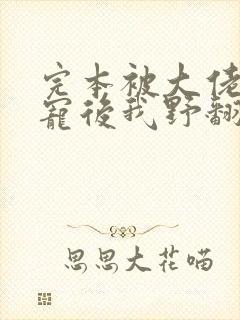 完本被大佬
寵後我野翻
思思大花喵